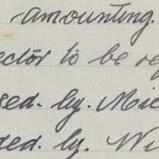 amounting.
ector to be re
sed. by. Mic
ded. by. Wi